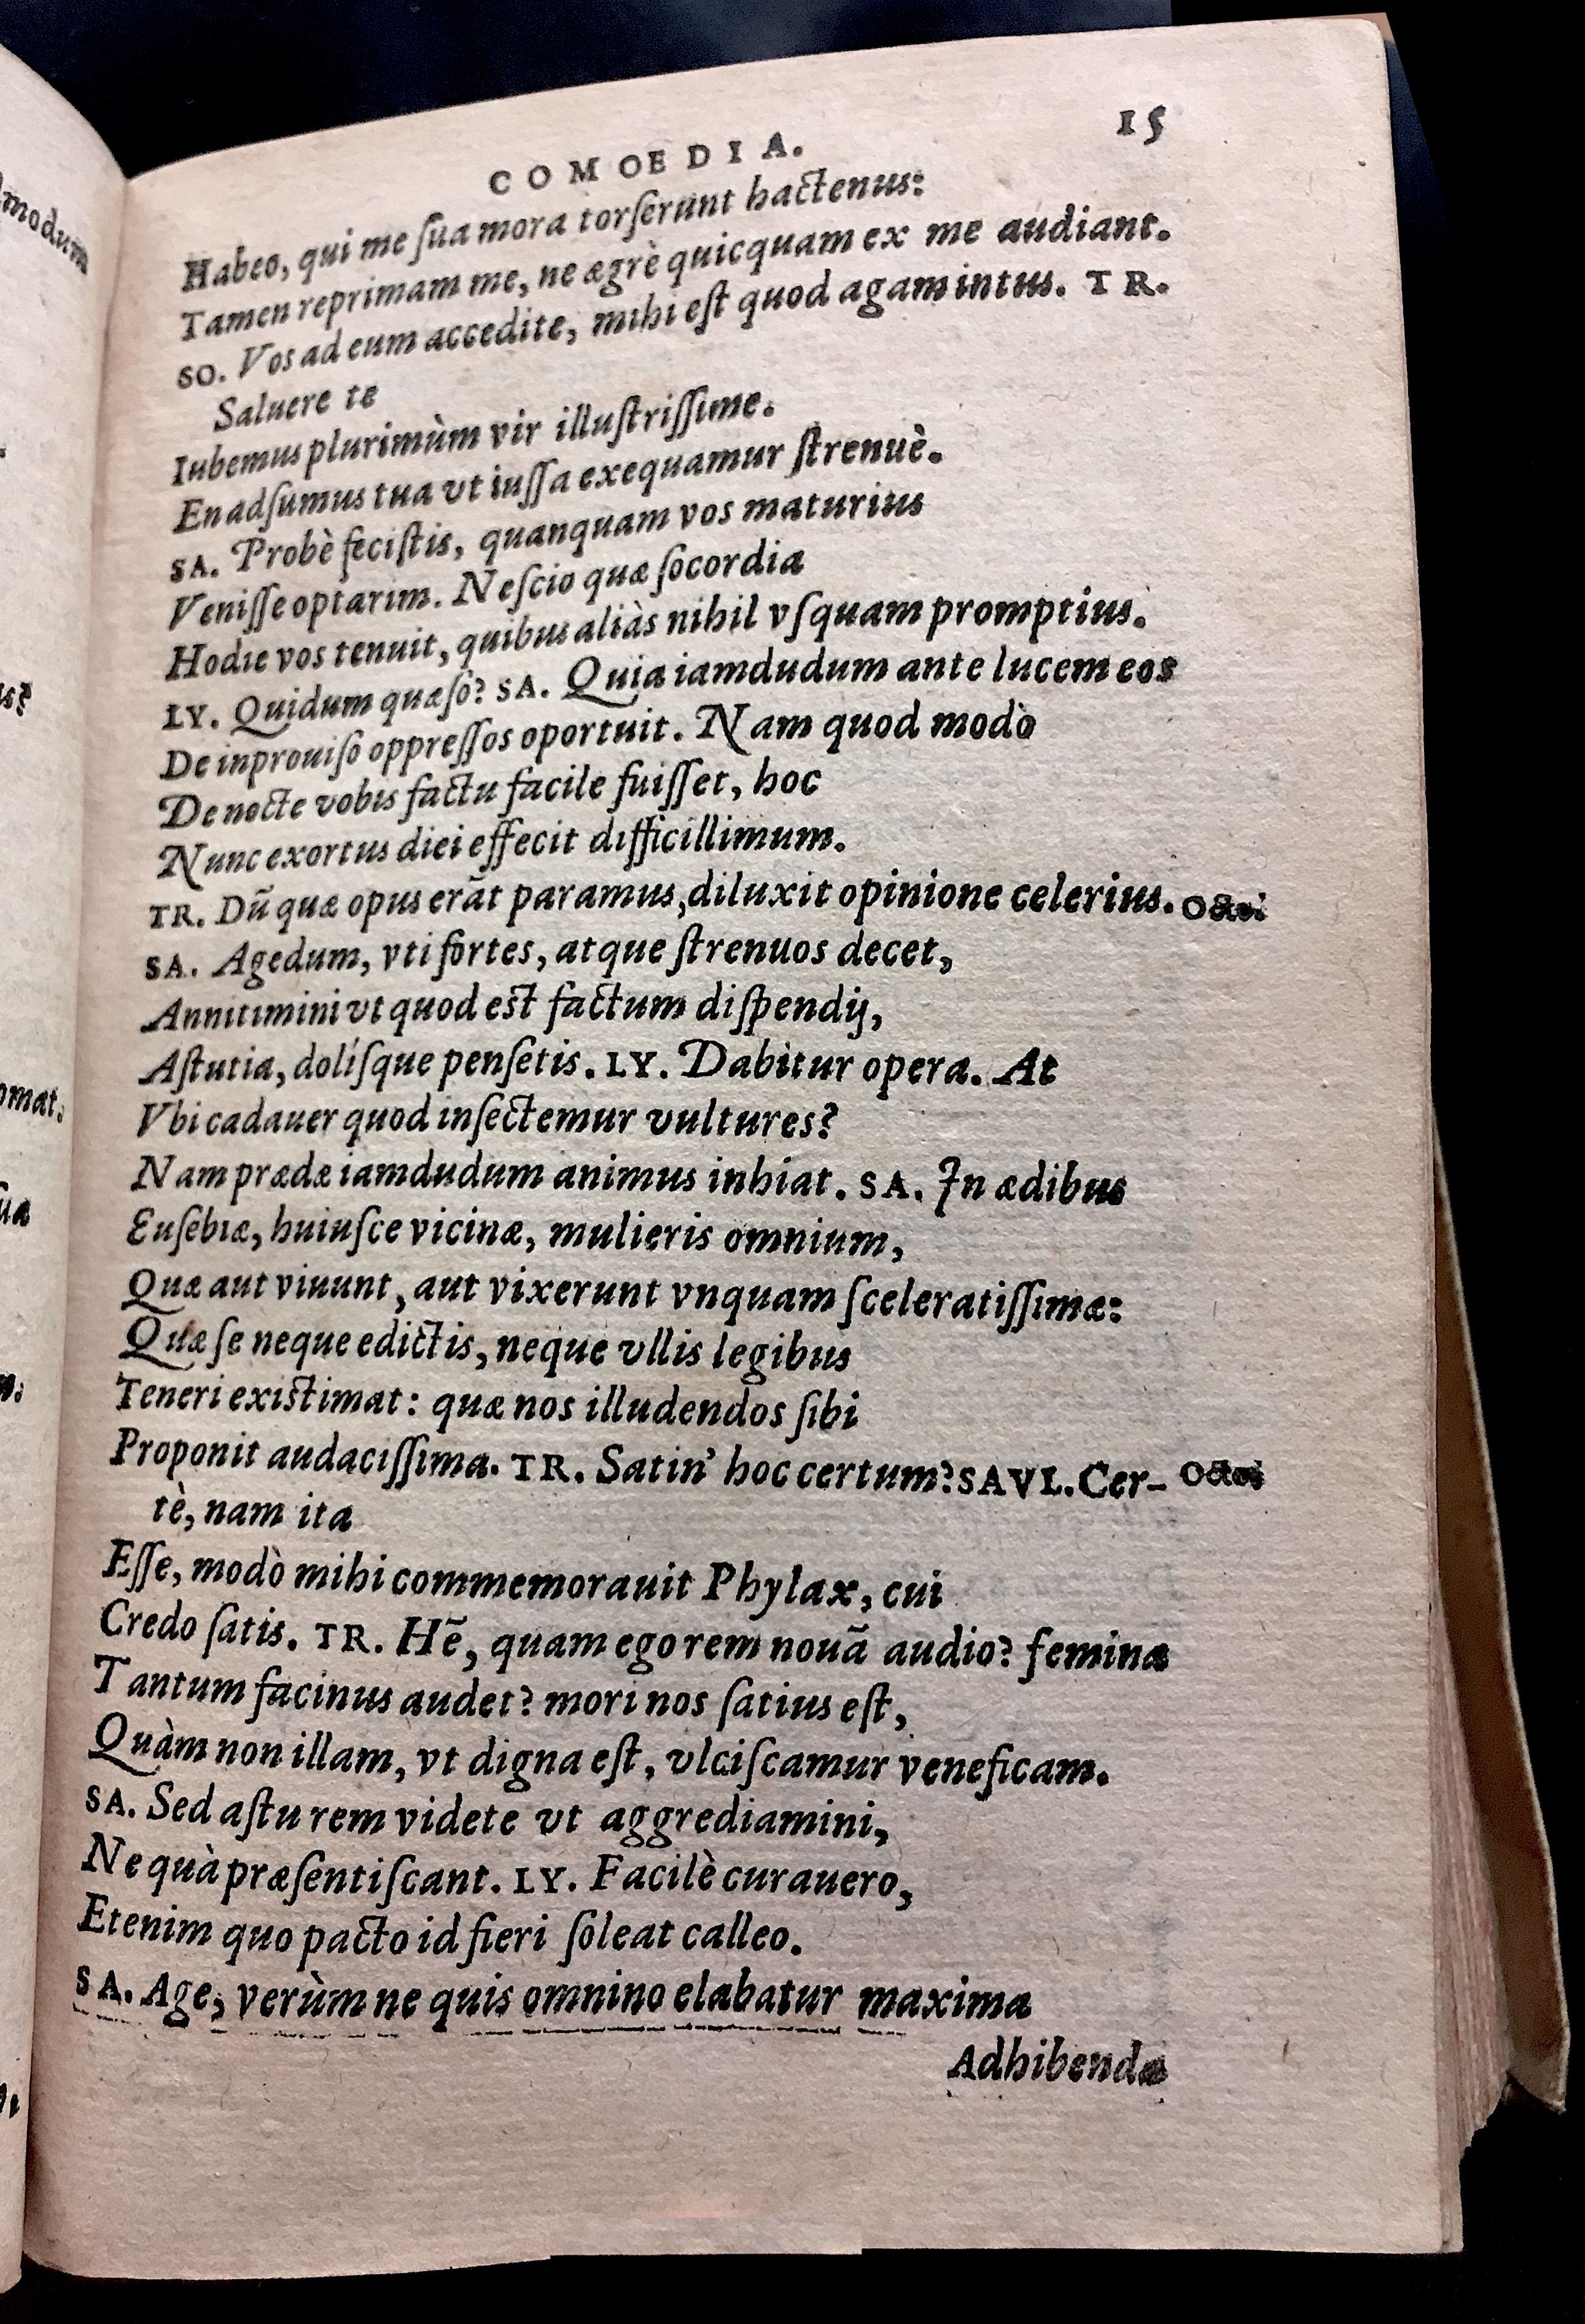 COMOEDIA. 15
Habeo, qui me ſua mora torſerunt hactenus:
Tamen reprimam me, ne ægrè quicquam ex me audiant.
SO. Vos ad eum accedite, mihi eſt quod agam intus. TR.
Saluere te
Iubemus plurimùm vir illuſtriſſime.
En adſumus tua vt iuſſa exequamur ſtrenuè.
SA. Probè feciſtis, quanquam vos maturius
Veniſſe optarim. Neſcio quæ ſocordia
Hodie vos tenuit, quibus aliàs nihil vſquam promptius.
LY. Quidum quæſo? SA. Quia iamdudum ante lucem eos
De inprouiſo oppreſſos oportuit. Nam quod modò
De nocte vobis factu facile fuiſſet, hoc
Nunc exortus diei effecit difficillimum.
TR. Dū quæ opus erāt paramus, diluxit opinione celerius. Octoi
SA. Agedum, vti fortes, atque ſtrenuos decet,
Annitimini vt quod est factum diſpendij,
Aſtutia, dolíſque penſetis. LY. Dabitur opera. At
Vbi cadauer quod inſectemur vultures?
Nam prædæ iamdudum animus inhiat. SA. In ædibus
Euſebiæ, huiuſce vicinæ, mulieris omnium,
Quæ aut viuunt, aut vixerunt vnquam ſceleratiſſimæ:
Quæ ſe neque edictis, neque vllis legibus
Teneri existimat: quæ nos illudendos ſibi
Proponit audaciſſima. TR. Satin' hoc certum? SAVL. Cer- Octoi
tè, nam ita
Eſſe, modò mihi commemorauit Phylax, cui
Credo ſatis. TR. Hē, quam ego rem nouā audio? femina
Tantum facinus audet? mori nos ſatius eſt,
Quàm non illam, vt digna eſt, vlciſcamur veneficam.
SA. Sed aſtu rem videte vt aggrediamini,
Ne quà præſentiſcant. LY. Facilè curauero,
Etenim quo pacto id fieri ſoleat calleo.
SA. Age, verùm ne quis omnino elabatur maxima
Adhibenda